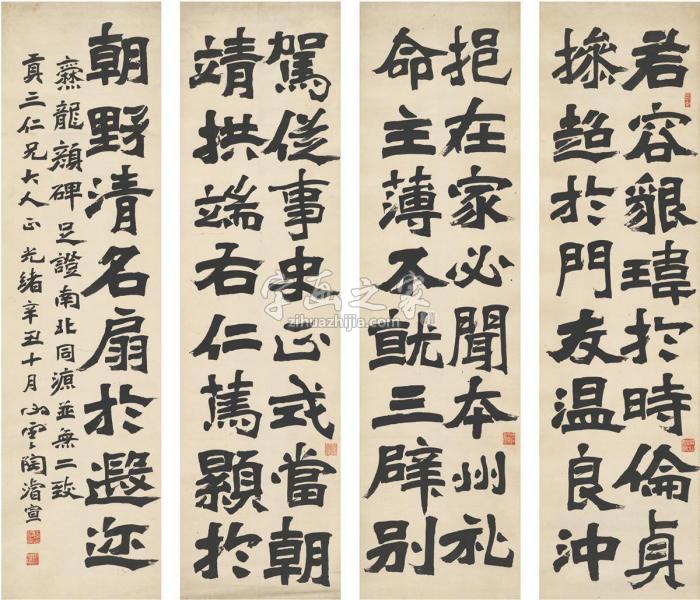 若容貇瑋於時倫貞
操超於門友溫良沖
挹在家必聞本州礼
命主薄不就三辟別
駕從事史正式當朝
靖拱端右仁篤顥於
朝野清名扇於遐迩
爨龍顏碑足證南北同源並無二致
三仁兄大人正 光緒辛丑十月 心雲陶濬宣
字画之家
zihuazhijia.com